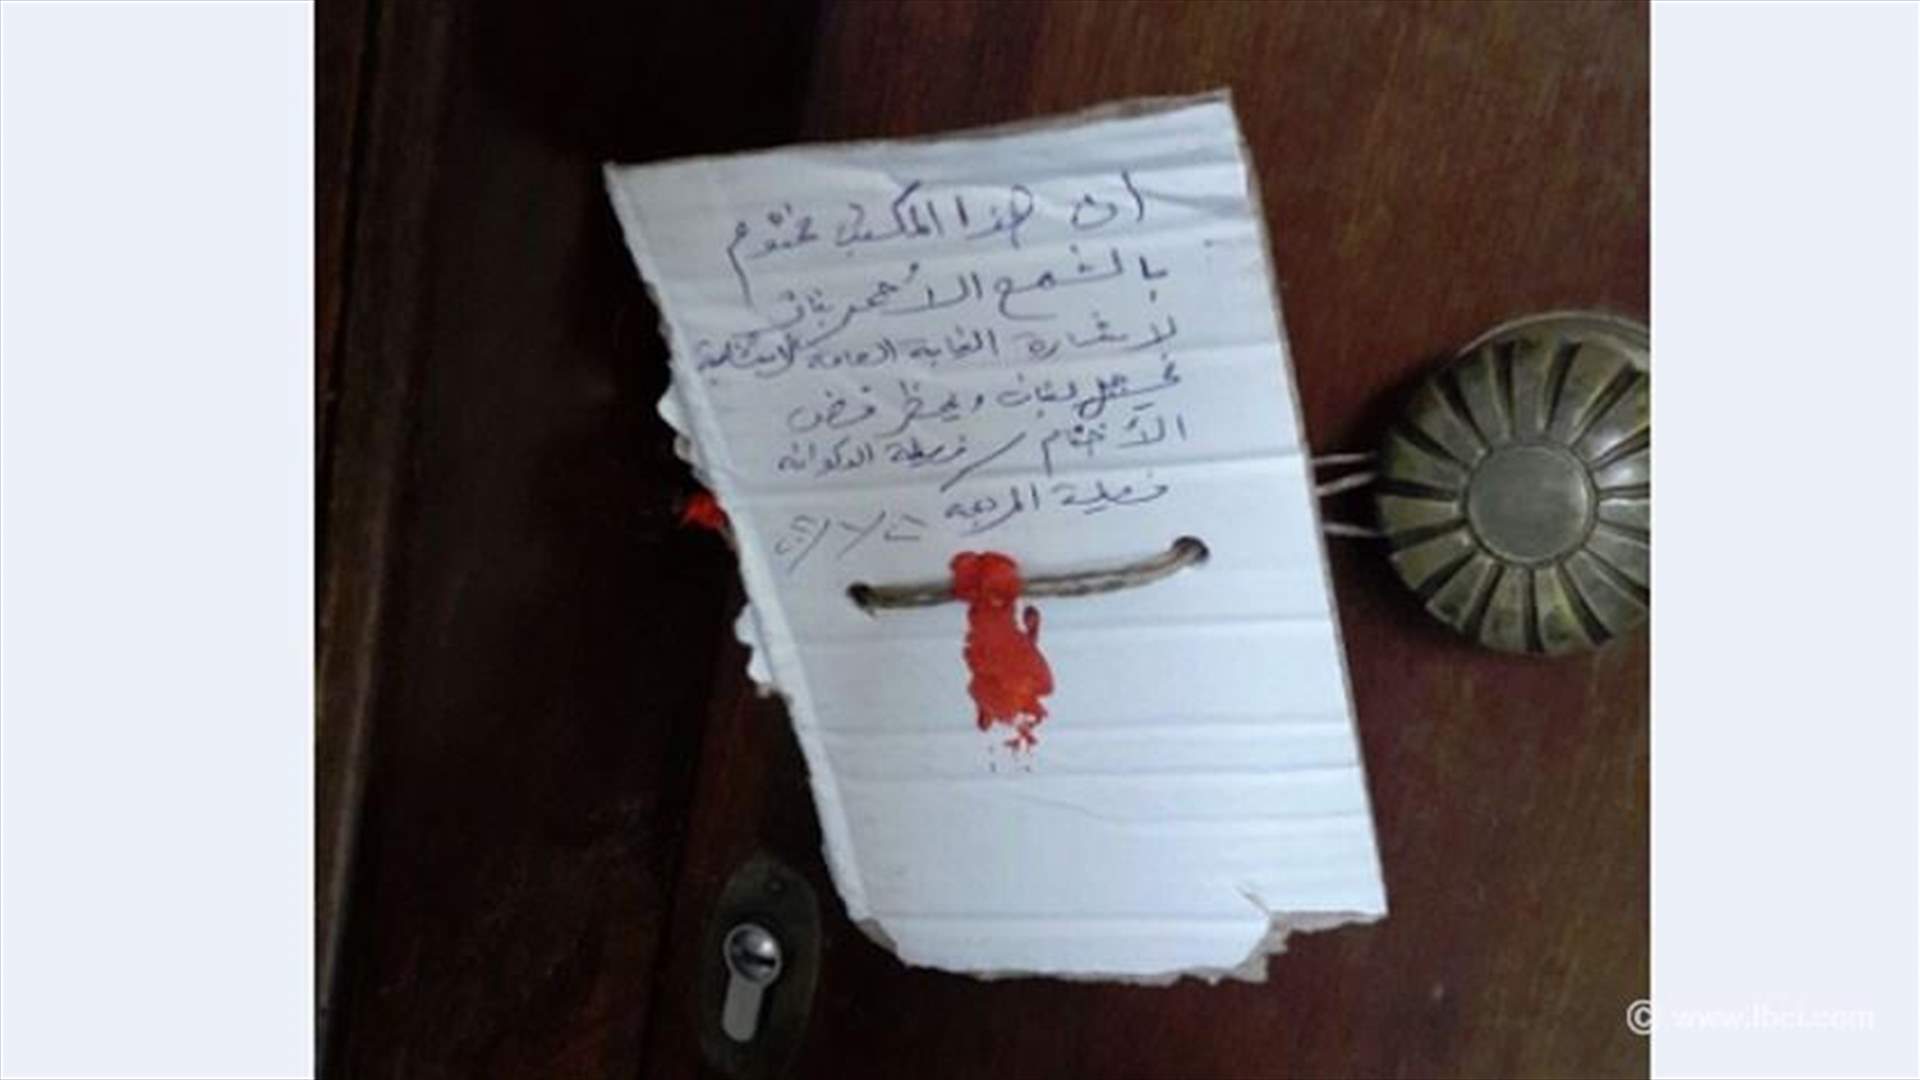 ان هذا المكتب مختوم
بالشمع الأحمر بناءً
لاشارة النيابة العامة الاستئنافية
جبل لبنان ويحظر فض
الأختام / فصيلة الدكوانه
فصيلة
© www.lbci.com